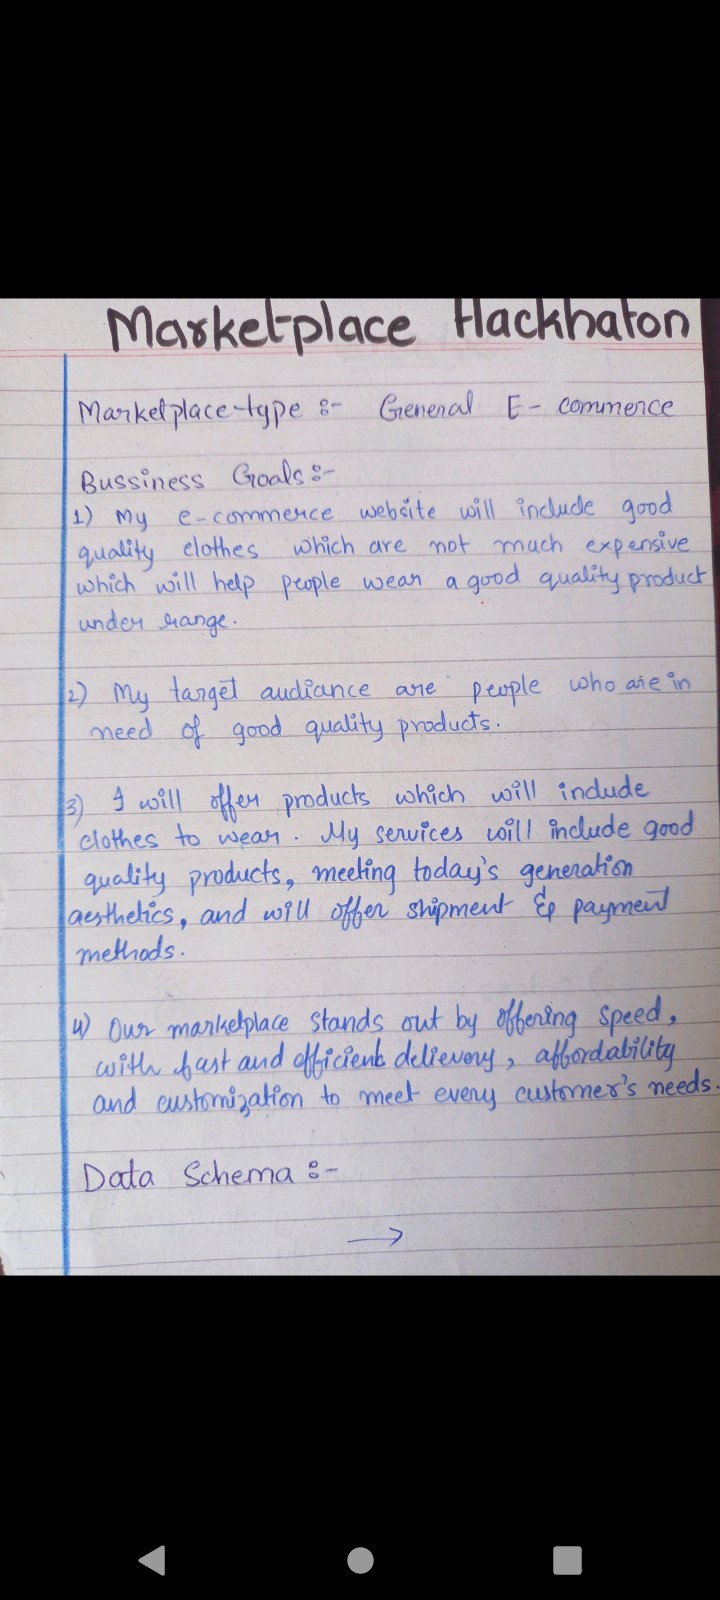 Marketplace Hackhaton
Marketplace-type :- General E-commerce
Bussiness Goals :-
1) My e-commerce website will include good
quality clothes which are not much expensive
which will help people wear a good quality product
under range.
2) My target audiance are people who are in
need of good quality products.
3) I will offer products which will include
clothes to wear. My services will include good
quality products, meeting today's generation
aesthetics, and will offer shipment & payment
methods.
4) Our marketplace stands out by offering speed,
with fast and efficient delievery, affordability
and customization to meet every customer's needs.
Data Schema :-
→